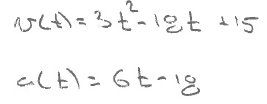 v(t) = 3t² - 18t + 15
a(t) = 6t - 18